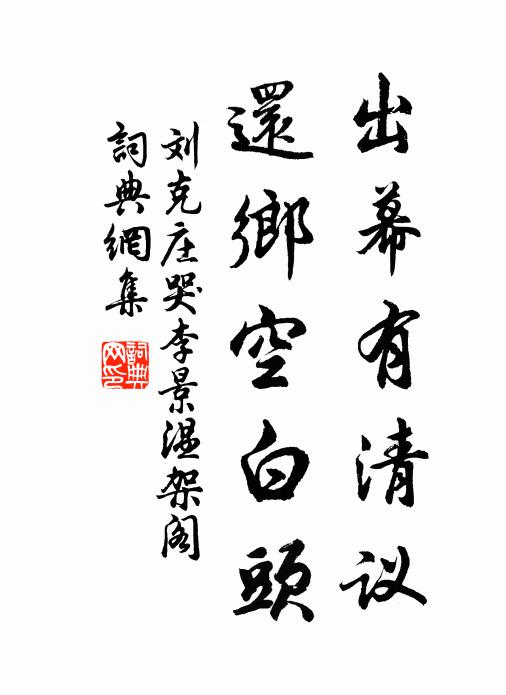 出幕有清议
還鄉空白頭
刘克庄哭李景溫架阁
詞典網集
詞典網印